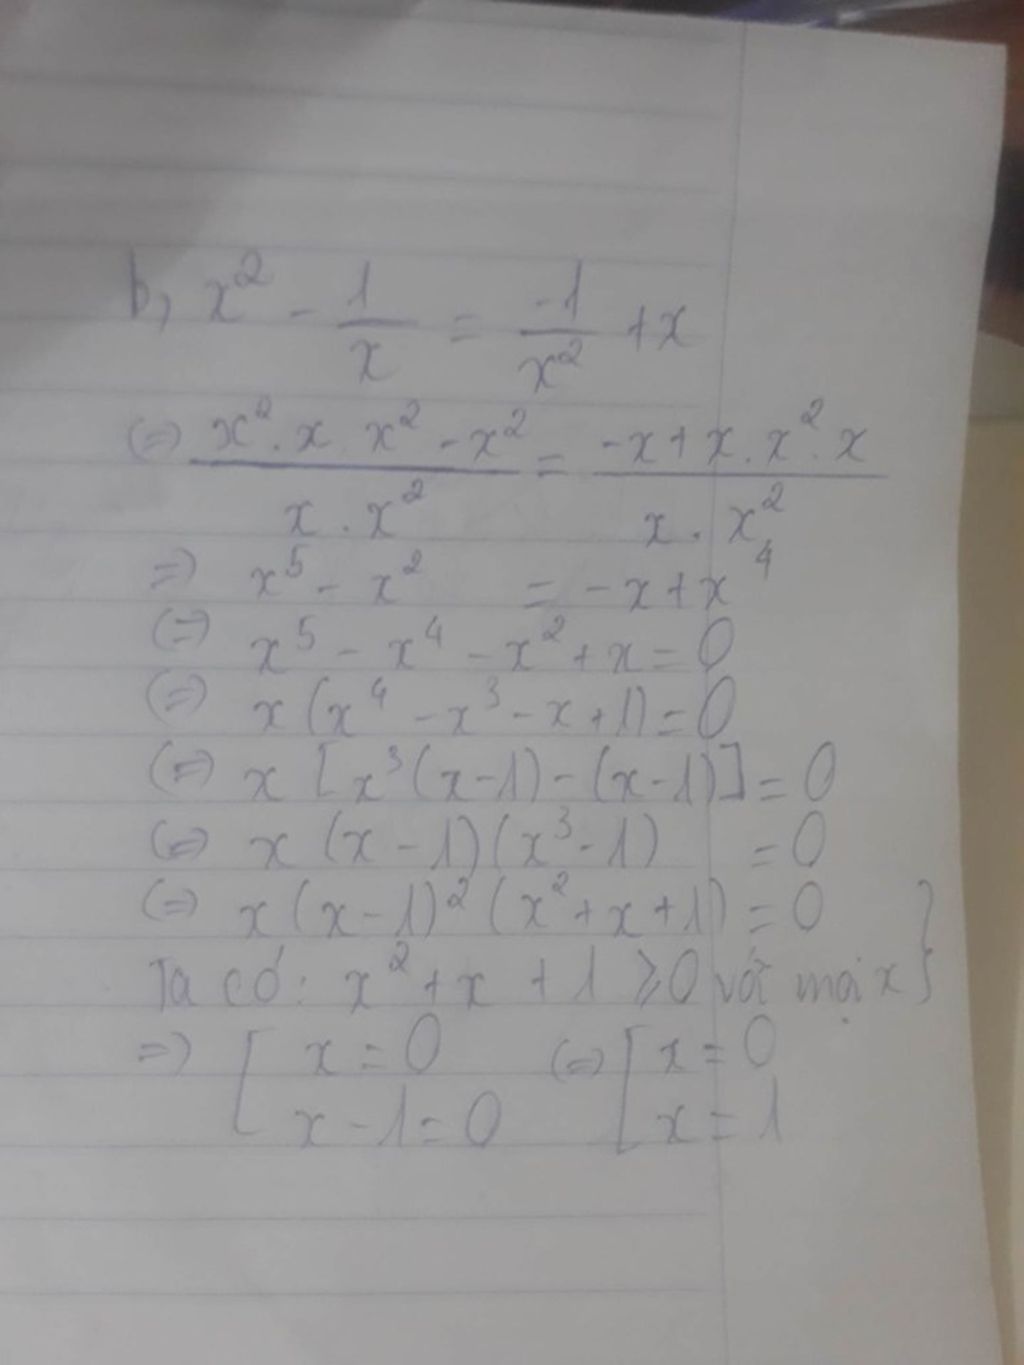 b, x² - 1/x = -1/x² + x
(=) (x².x.x² - x²)/(x.x²) = (-x + x.x².x)/(x.x²)
=) x⁵ - x² = -x + x⁴
(=) x⁵ - x⁴ - x² + x = 0
(=) x(x⁴ - x³ - x + 1) = 0
(=) x[x³(x-1) - (x-1)] = 0
(=) x(x - 1)(x³ - 1) = 0
(=) x(x-1)²(x² + x + 1) = 0
Ta có: x² + x + 1 ⩾ 0 với mọi x }
=) [ x = 0 (=) [ x = 0
x - 1 = 0 x = 1